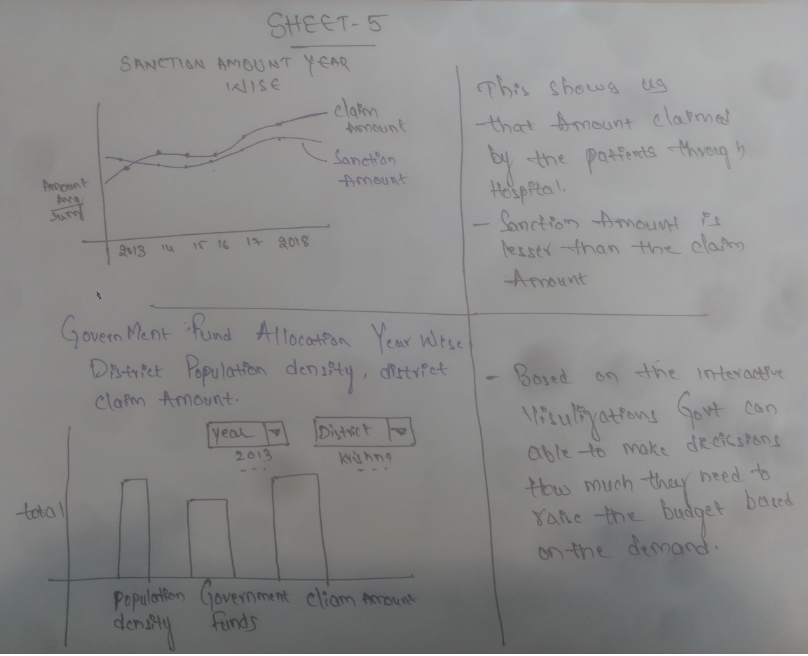 SHEET-5
SANCTION AMOUNT YEAR
WISE
claim
Amount
Sanction
Amount
Amount
Avg
Sum
2013 14 15 16 17 2018
This shows us
that Amount claimed
by the patients through
Hospital.
- Sanction Amount is
lesser than the claim
Amount
Government Fund Allocation Year Wise
District Population density, district
claim Amount.
Year
District
2013
Krishna
total
Population
density
Government
funds
Cliam Amount
- Based on the interactive
Visulizations Govt can
able to make decicsions
How much they need to
raise the budget based
on the demand.